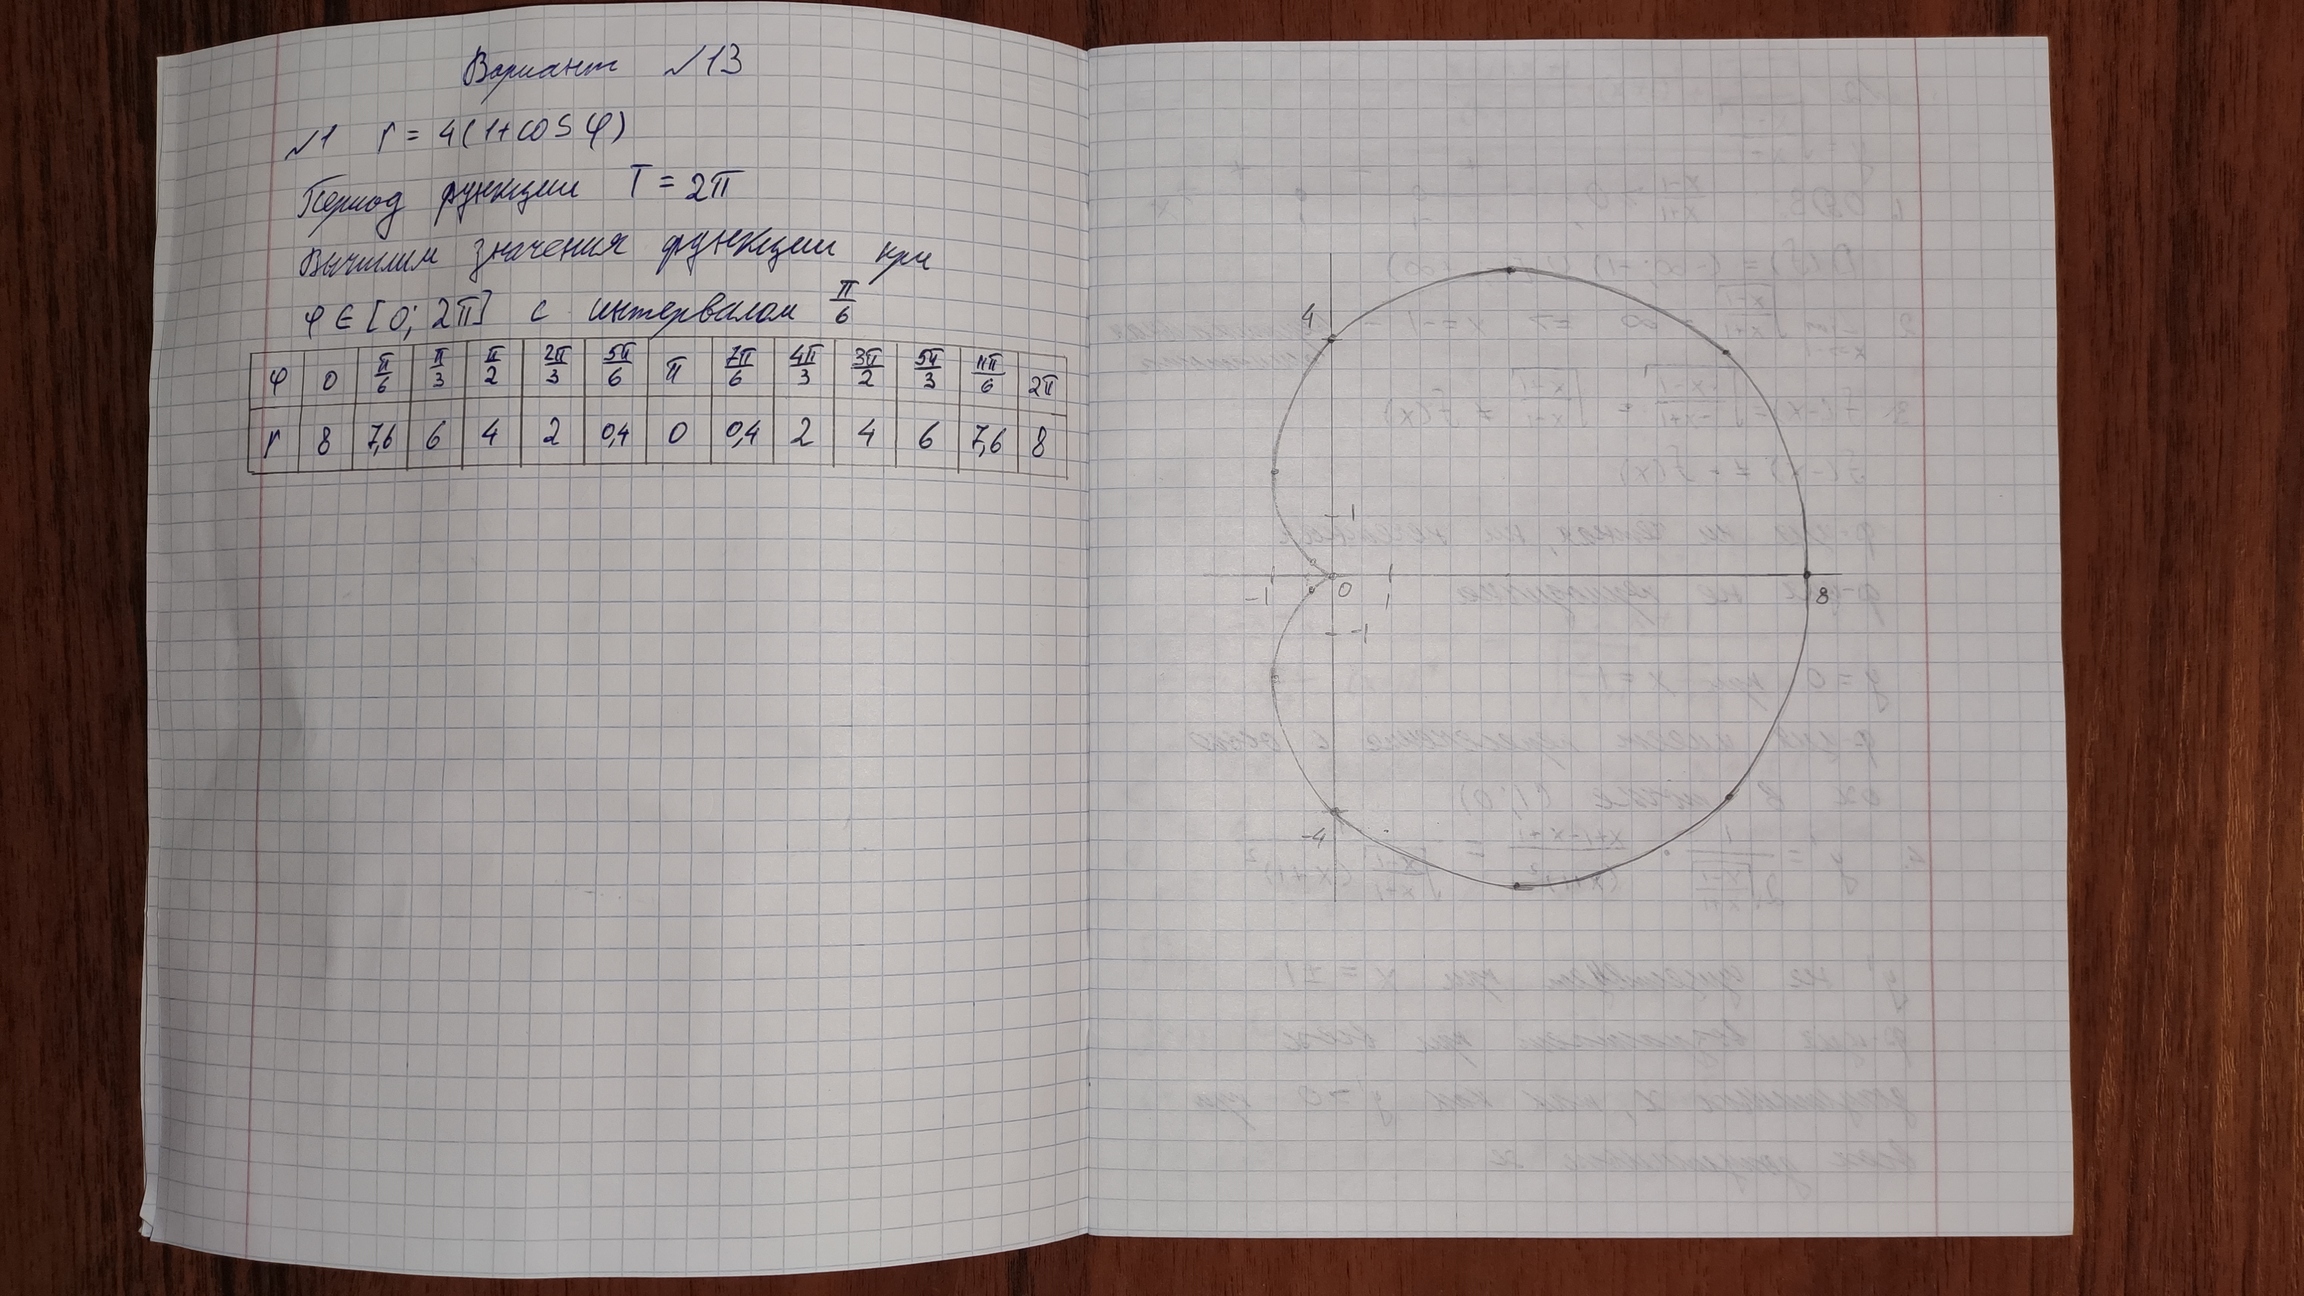 Вариант №13
№1 r = 4(1+cos φ)
Период функции T = 2π
Вычислим значения функции при
φ ∈ [0; 2π] с интервалом π/6
φ 0 π/6 π/3 π/2 2π/3 5π/6 π 7π/6 4π/3 3π/2 5π/3 11π/6 2π
r 8 7,6 6 4 2 0,4 0 0,4 2 4 6 7,6 8
4
1
-1 0 1 8
-1
-4